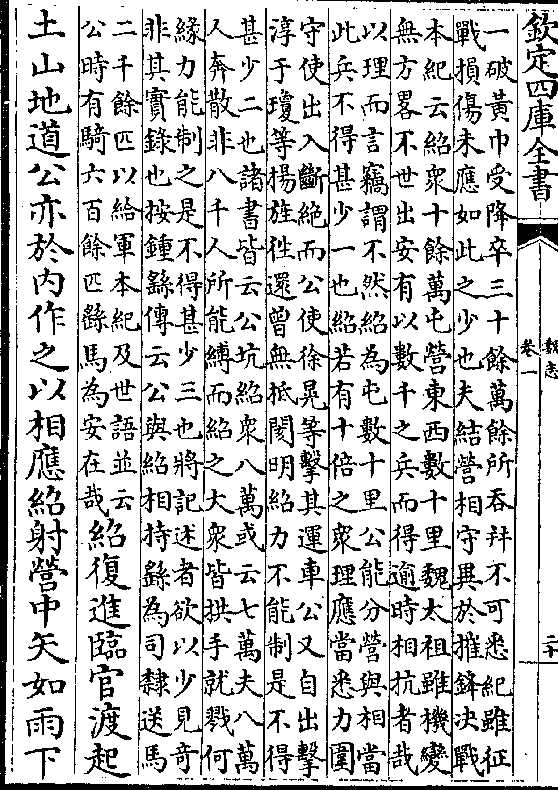 欽定四庫全書
魏志
卷一
二十
一破黄巾受降卒三十餘萬餘所吞并不可悉紀雖征
戰損傷未應如此之少也夫結營相守異於摧鋒決戰
本紀云紹衆十餘萬屯營東西數十里魏太祖雖機變
無方畧不世出安有以數千之兵而得逾時相抗者哉
以理而言竊謂不然紹為屯數十里公能分營與相當
此兵不得甚少一也紹若有十倍之衆理應當悉力圍
守使出入斷絕而公使徐晃等擊其運車公又自出擊
淳于瓊等揚旌徃還曾無抵閡明紹力不能制是不得
甚少二也諸書皆云公坑紹衆八萬或云七萬夫八萬
人奔散非八千人所能縛而紹之大衆皆拱手就戮何
緣力能制之是不得甚少三也將記述者欲以少見奇
非其實錄也按鍾繇傳云公與紹相持繇為司隸送馬
二千餘匹以給軍本紀及世語並云
公時有騎六百餘匹繇馬為安在哉
紹復進臨官渡起
土山地道公亦於内作之以相應紹射營中矢如雨下